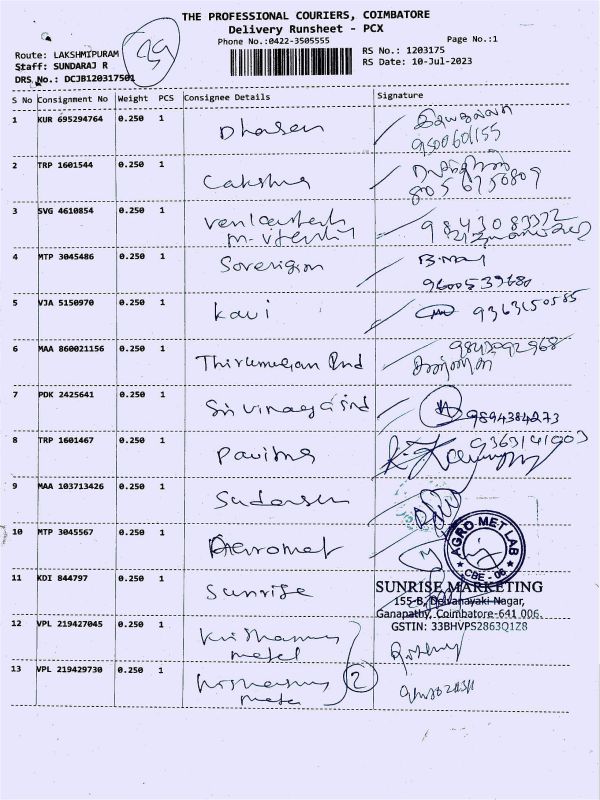 THE PROFESSIONAL COURIERS, COIMBATORE
Delivery Runsheet - PCX
Phone No.:0422-3505555
Page No.:1
39
Route: LAKSHMIPURAM
RS No.: 1203175
Staff: SUNDARAJ R
RS Date: 10-Jul-2023
DRS No.: DCJB120317501
S No Consignment No Weight PCS Consignee Details Signature
1 KUR 695294764 0.250 1 Dhasen
9500601155
2 TRP 1601544 0.250 1 Lakshme
8056750809
3 SVG 4610854 0.250 1
9843083372
4 MTP 3045486 0.250 1 Sovereign
9600539680
5 VJA 5150970 0.250 1 Kavi 9363150585
6 MAA 860021156 0.250 1 Thirumugan Ind 9843092968
7 PDK 2425641 0.250 1 Sri vinayaga Ind 9894384273
8 TRP 1601467 0.250 1 Pavithra 9363141003
9 MAA 103713426 0.250 1 Sudersen
10 MTP 3045567 0.250 1 Aeromet
AGRO MET LAB
CBE - 06
11 KDI 844797 0.250 1 Sunrise
SUNRISE MARKETING
155-B, Deivanayaki Nagar,
Ganapathy, Coimbatore-641 006.
GSTIN: 33BHVPS2863Q1Z8
12 VPL 219427045 0.250 1 Krishnamus
metel
13 VPL 219429730 0.250 1 Krishnamus 2
metel